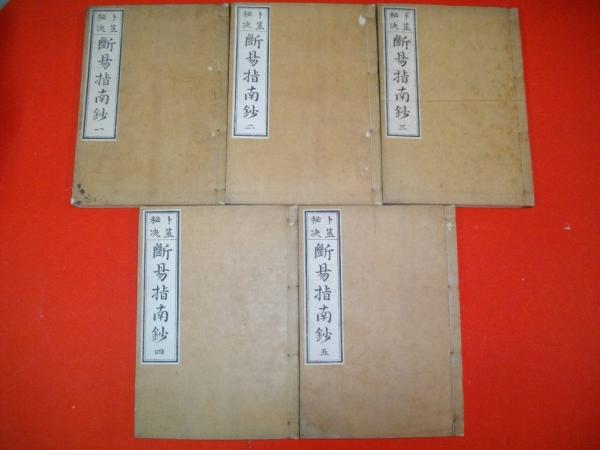 卜筮
秘決
斷易指南鈔
一
卜筮
秘決
斷易指南鈔
二
卜筮
秘決
斷易指南鈔
三
卜筮
秘決
斷易指南鈔
四
卜筮
秘決
斷易指南鈔
五